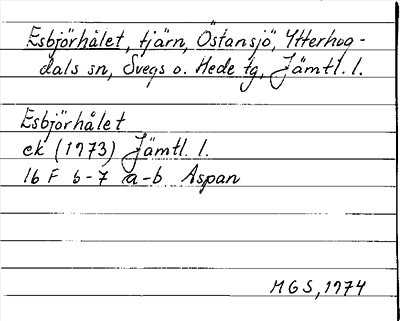 Esbjörhålet, tjärn, Östansjö, Ytterhog-
dals sn, Svegs o. Hede tg, Jämtl. l.
Esbjörhålet
ek (1973) Jämtl. l.
16 F 6-7 a-b Aspan
MGS, 1974